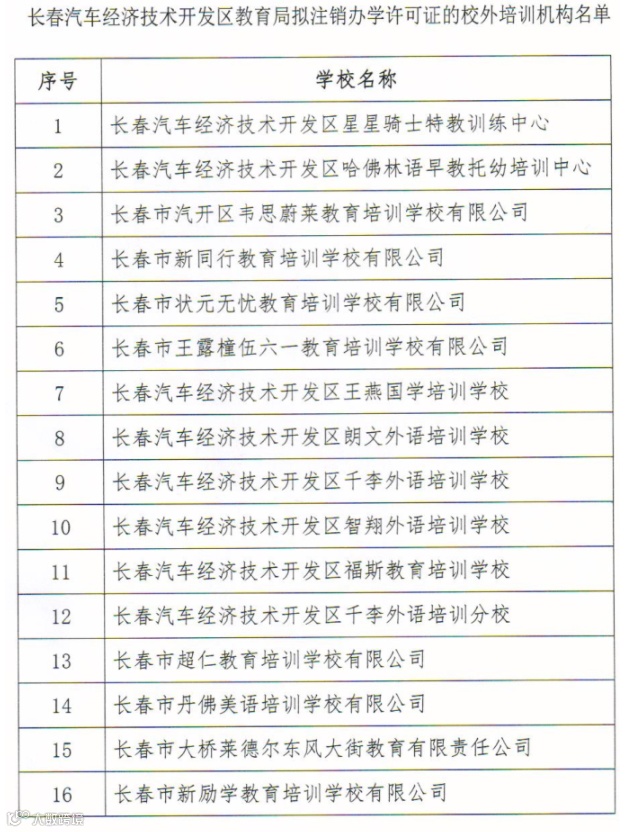 长春汽车经济技术开发区教育局拟注销办学许可证的校外培训机构名单
序号 学校名称
1 长春汽车经济技术开发区星星骑士特教训练中心
2 长春汽车经济技术开发区哈佛林语早教托幼培训中心
3 长春市汽开区韦思蔚莱教育培训学校有限公司
4 长春市新同行教育培训学校有限公司
5 长春市状元无忧教育培训学校有限公司
6 长春市王露橦伍六一教育培训学校有限公司
7 长春汽车经济技术开发区王燕国学培训学校
8 长春汽车经济技术开发区朗文外语培训学校
9 长春汽车经济技术开发区千李外语培训学校
10 长春汽车经济技术开发区智翔外语培训学校
11 长春汽车经济技术开发区福斯教育培训学校
12 长春汽车经济技术开发区千李外语培训分校
13 长春市超仁教育培训学校有限公司
14 长春市丹佛美语培训学校有限公司
15 长春市大桥莱德尔东风大街教育有限责任公司
16 长春市新励学教育培训学校有限公司
大数跨境